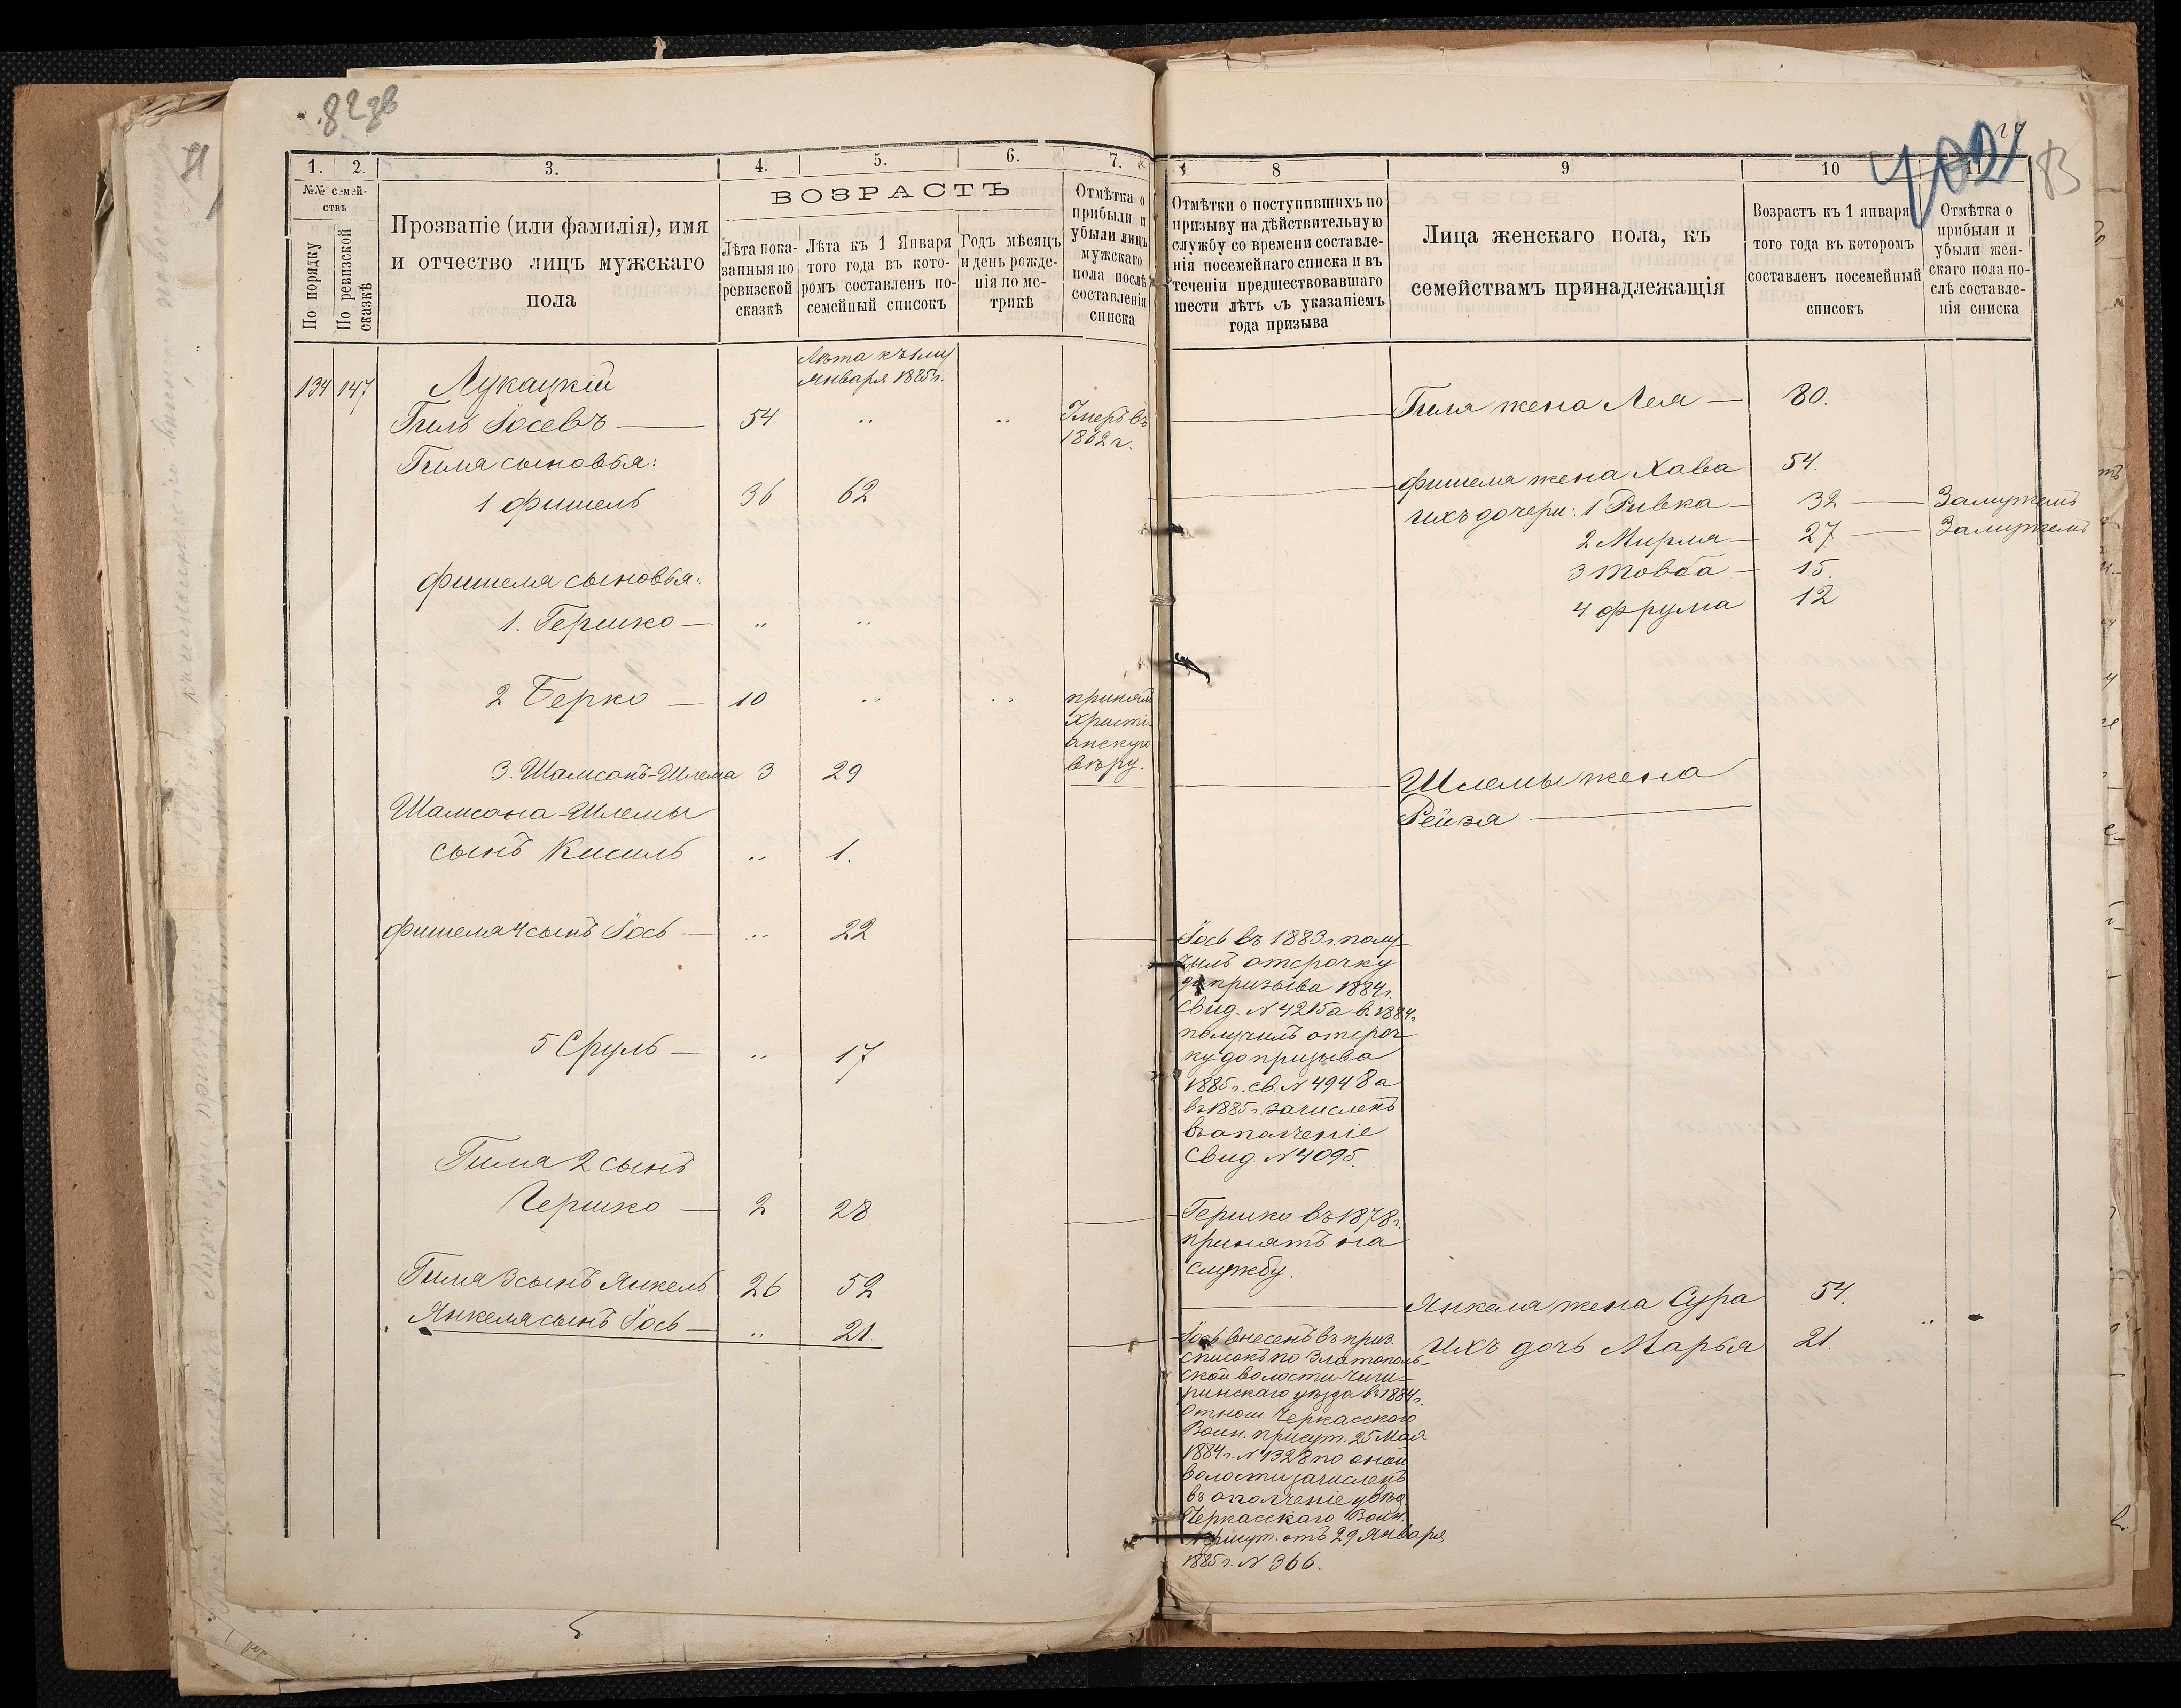 82зв
1.
2.
3.
4.
5.
6.
7.
№№ семей-
ствъ
По порядку
По ревизской
сказкѣ
Прозваніе (или фамилія), имя
и отчество лицъ мужскаго
пола
ВОЗРАСТЪ
Лѣта пока-
занныя по
ревизской
сказкѣ
Лѣта къ 1 Января
того года въ кото-
ромъ составленъ по-
семейный списокъ
Годъ мѣсяцъ
и день рожде-
нія по ме-
трикѣ
Отмѣтка о
прибыли и
убыли лицъ
мужскаго
пола послѣ
составленія
списка
Лѣта къ 1му
Января 1885 г.
134 147 Лукацкій
Гиль Іосевъ — 54 „ „ Умеръ въ
1862 г.
Гиля сыновья:
1 Фишель 36 62
Фишеля сыновья:
1. Гершко — „ „
2 Берко — 10 „ „ принялъ
христі-
анскую
вѣру.
3. Шамсонъ-Шлема 3 29
Шамсона-Шлемы
сынъ Кисиль „ 1.
Фишеля 4 сынъ Іось — „ 22
5 Сруль — „ 17
Гиля 2 сынъ
Гершко — 2 28
Гиля 3 сынъ Янкель 26 52
Янкеля сынъ Іось — „ 21.
83
8
9
10
11
Отмѣтки о поступившихъ по
призыву на дѣйствительную
службу со времени составле-
нія посемейнаго списка и въ
теченіи предшествовавшаго
шести лѣтъ съ указаніемъ
года призыва
Лица женскаго пола, къ
семействамъ принадлежащія
Возрастъ къ 1 января
того года въ которомъ
составленъ посемейный
списокъ
Отмѣтка о
прибыли и
убыли жен-
скаго пола по-
слѣ составле-
нія списка
Гиля жена Лея — 80.
Фишеля жена Хава 54.
Ихъ дочери: 1 Ривка — 32 — Замужемъ
2 Мирля — 27 — Замужемъ
3 Товба — 15.
4 Фрума 12
Шлемы жена
Рейзя —
Іось въ 1883 г. полу-
чилъ отсрочку
до призыва 1884 г.
свид. N 4215 а въ 1884 г.
получилъ отсроч-
ку до призыва
1885 г. св. N 4948 а
въ 1885 г. зачисленъ
въ ополченіе
свид. N 4095.
Гершко въ 1878 г.
принятъ на
службу.
Янкеля жена Сура 54.
Ихъ дочь Марья 21.
Іось внесенъ въ приз.
списокъ по Златополь-
ской волости Чиги-
ринскаго уѣзда въ 1884 г.
отнош. Черкасскаго
Воин. присут. 25 Мая
1884 г. N 1328 по оной
волости зачисленъ
въ ополченіе увѣд.
Черкасскаго Воин.
присут. отъ 29 Января
1885 г. N 366.